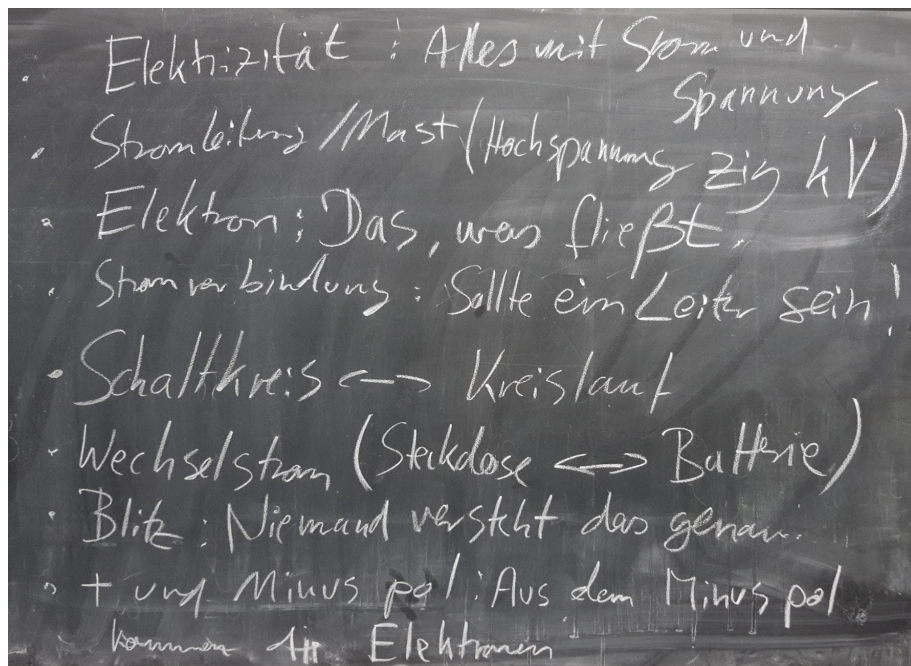 • Elektrizität : Alles mit Strom und
Spannung
• Stromleitung / Mast (Hochspannung zig kV)
• Elektron : Das, was fließt.
• Stromverbindung : Sollte ein Leiter sein!
• Schaltkreis <-> Kreislauf
• Wechselstrom (Steckdose <-> Batterie)
• Blitz : Niemand versteht das genau.
• + und Minuspol : Aus dem Minuspol
kommen die Elektronen